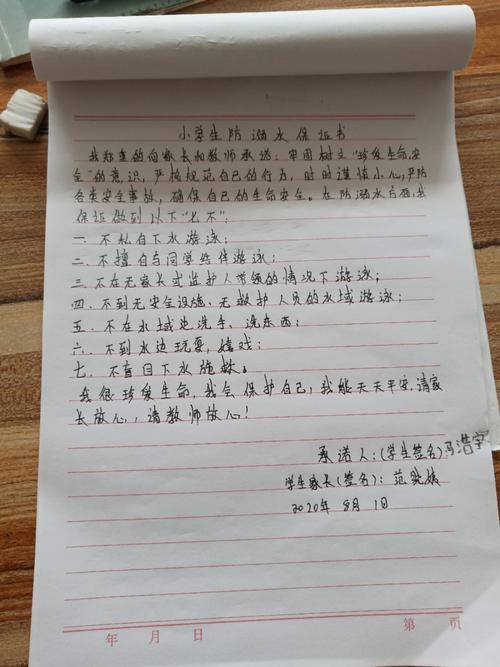 小学生防溺水保证书
我郑重的向家长和教师承诺：牢固树立"珍爱生命,安
全"的意识，严格规范自己的行为，时时谨慎小心,严防
各类安全事故，确保自己的生命安全。在防溺水方面,我
保证做到以下"七不"：
一.不私自下水游泳；
二.不擅自与同学结伴游泳；
三.不在无家长或监护人带领的情况下游泳；
四.不到无安全设施、无救护人员的水域游泳；
五.不在水域边洗手、洗东西；
六.不到水边玩耍，嬉戏；
七.不盲目下水施救。
我很珍爱生命，我会保护自己，我能天天平安,请家
长放心，请教师放心！
承诺人：(学生签名)冯浩宇
学生家长(签名)：范
2020年 8月 1日
年 月 日 第 页